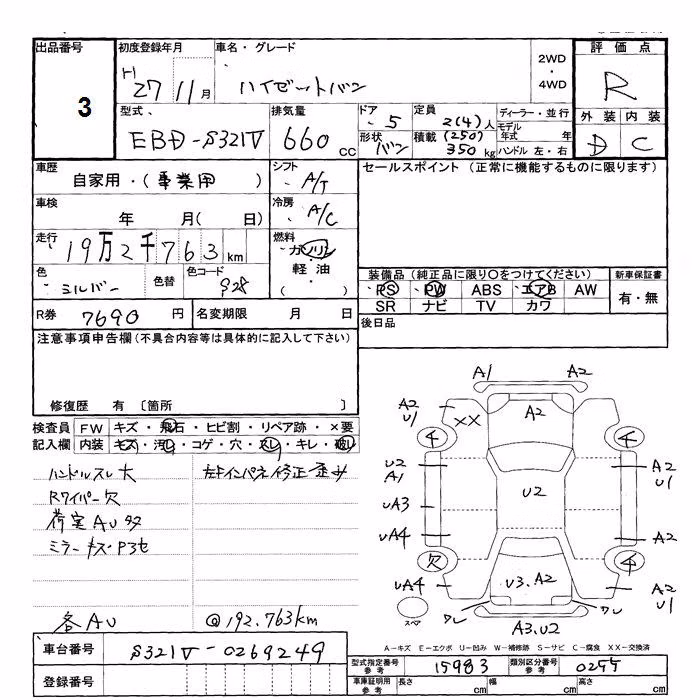 出品番号
3
初度登録年月
H
27 11月
車名・グレード
ハイゼットバン
2WD
・
4WD
評価点
R
外装 内装
D C
型式
EBD-S321V
排気量
660 cc
ドア
5
形状
バン
定員
2(4)人
積載
(250)
350 kg
ディーラー・並行
モデル年式 年
ハンドル 左・右
車歴
自家用・(事業用)
シフト
A/T
セールスポイント(正常に機能するものに限ります)
車検
年 月(日)
冷房
A/C
走行
19万2千763km
燃料
ガソリン
軽油
( )
色
シルバー
色替
色コード
S28
装備品(純正品に限り○をつけてください)
PS PW ABS エアB AW
SR ナビ TV カワ
新車保証書
有・無
R券 7690円
名変期限 月 日
後日品
注意事項申告欄(不具合内容等は具体的に記入して下さい)
修復歴 有 〔箇所 〕
検査員記入欄
FW キズ・飛石・ヒビ割・リペア跡・×要
内装 キズ・汚レ・コゲ・穴・スレ・キレ・破レ
ハンドルスレ大
Rワイパー欠
荷室AU多
ミラーキズ・P3セ
各AU
左キインパネ修正歪み
@192.763km
A1
A2
A2
U1
XX
A2
キ
キ
U2
A1
U2
A2
U1
UA3
UA4
A2
欠
キ
UA4
U3.A2
A2
U1
スペア
ワレ
ワレ
A3.U2
A-キズ E-エクボ U-凹み W-補修跡 S-サビ C-腐食 XX-交換済
車台番号
S321V-0269249
登録番号
型式指定番号
参考
15983
類別区分番号
参考
0255
車庫証明用
参考
長さ cm
幅 cm
高さ cm